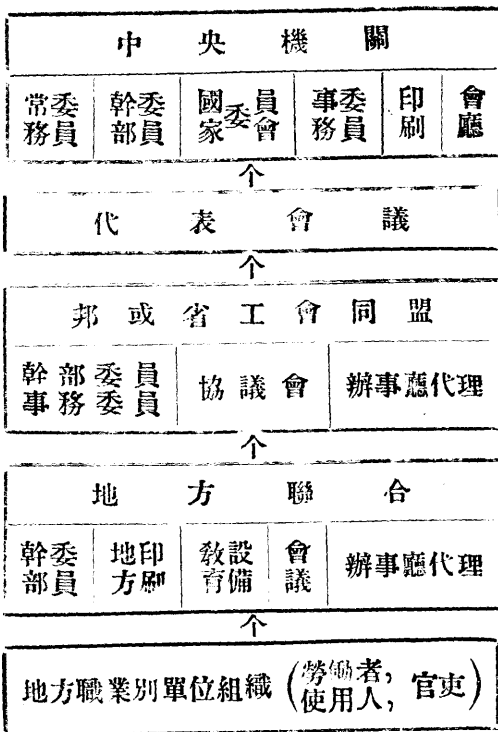 中央機關
常務委員 幹部委員 國家委員會 事務委員 印刷 會廳
个
代表會議
个
邦或省工會同盟
幹部委員 協議會 辦事廳代理
事務委員
个
地方聯合
幹部委員 地方印刷 敎育設備 會議 辦事廳代理
个
地方職業別單位組織(勞働者,使用人,官吏)